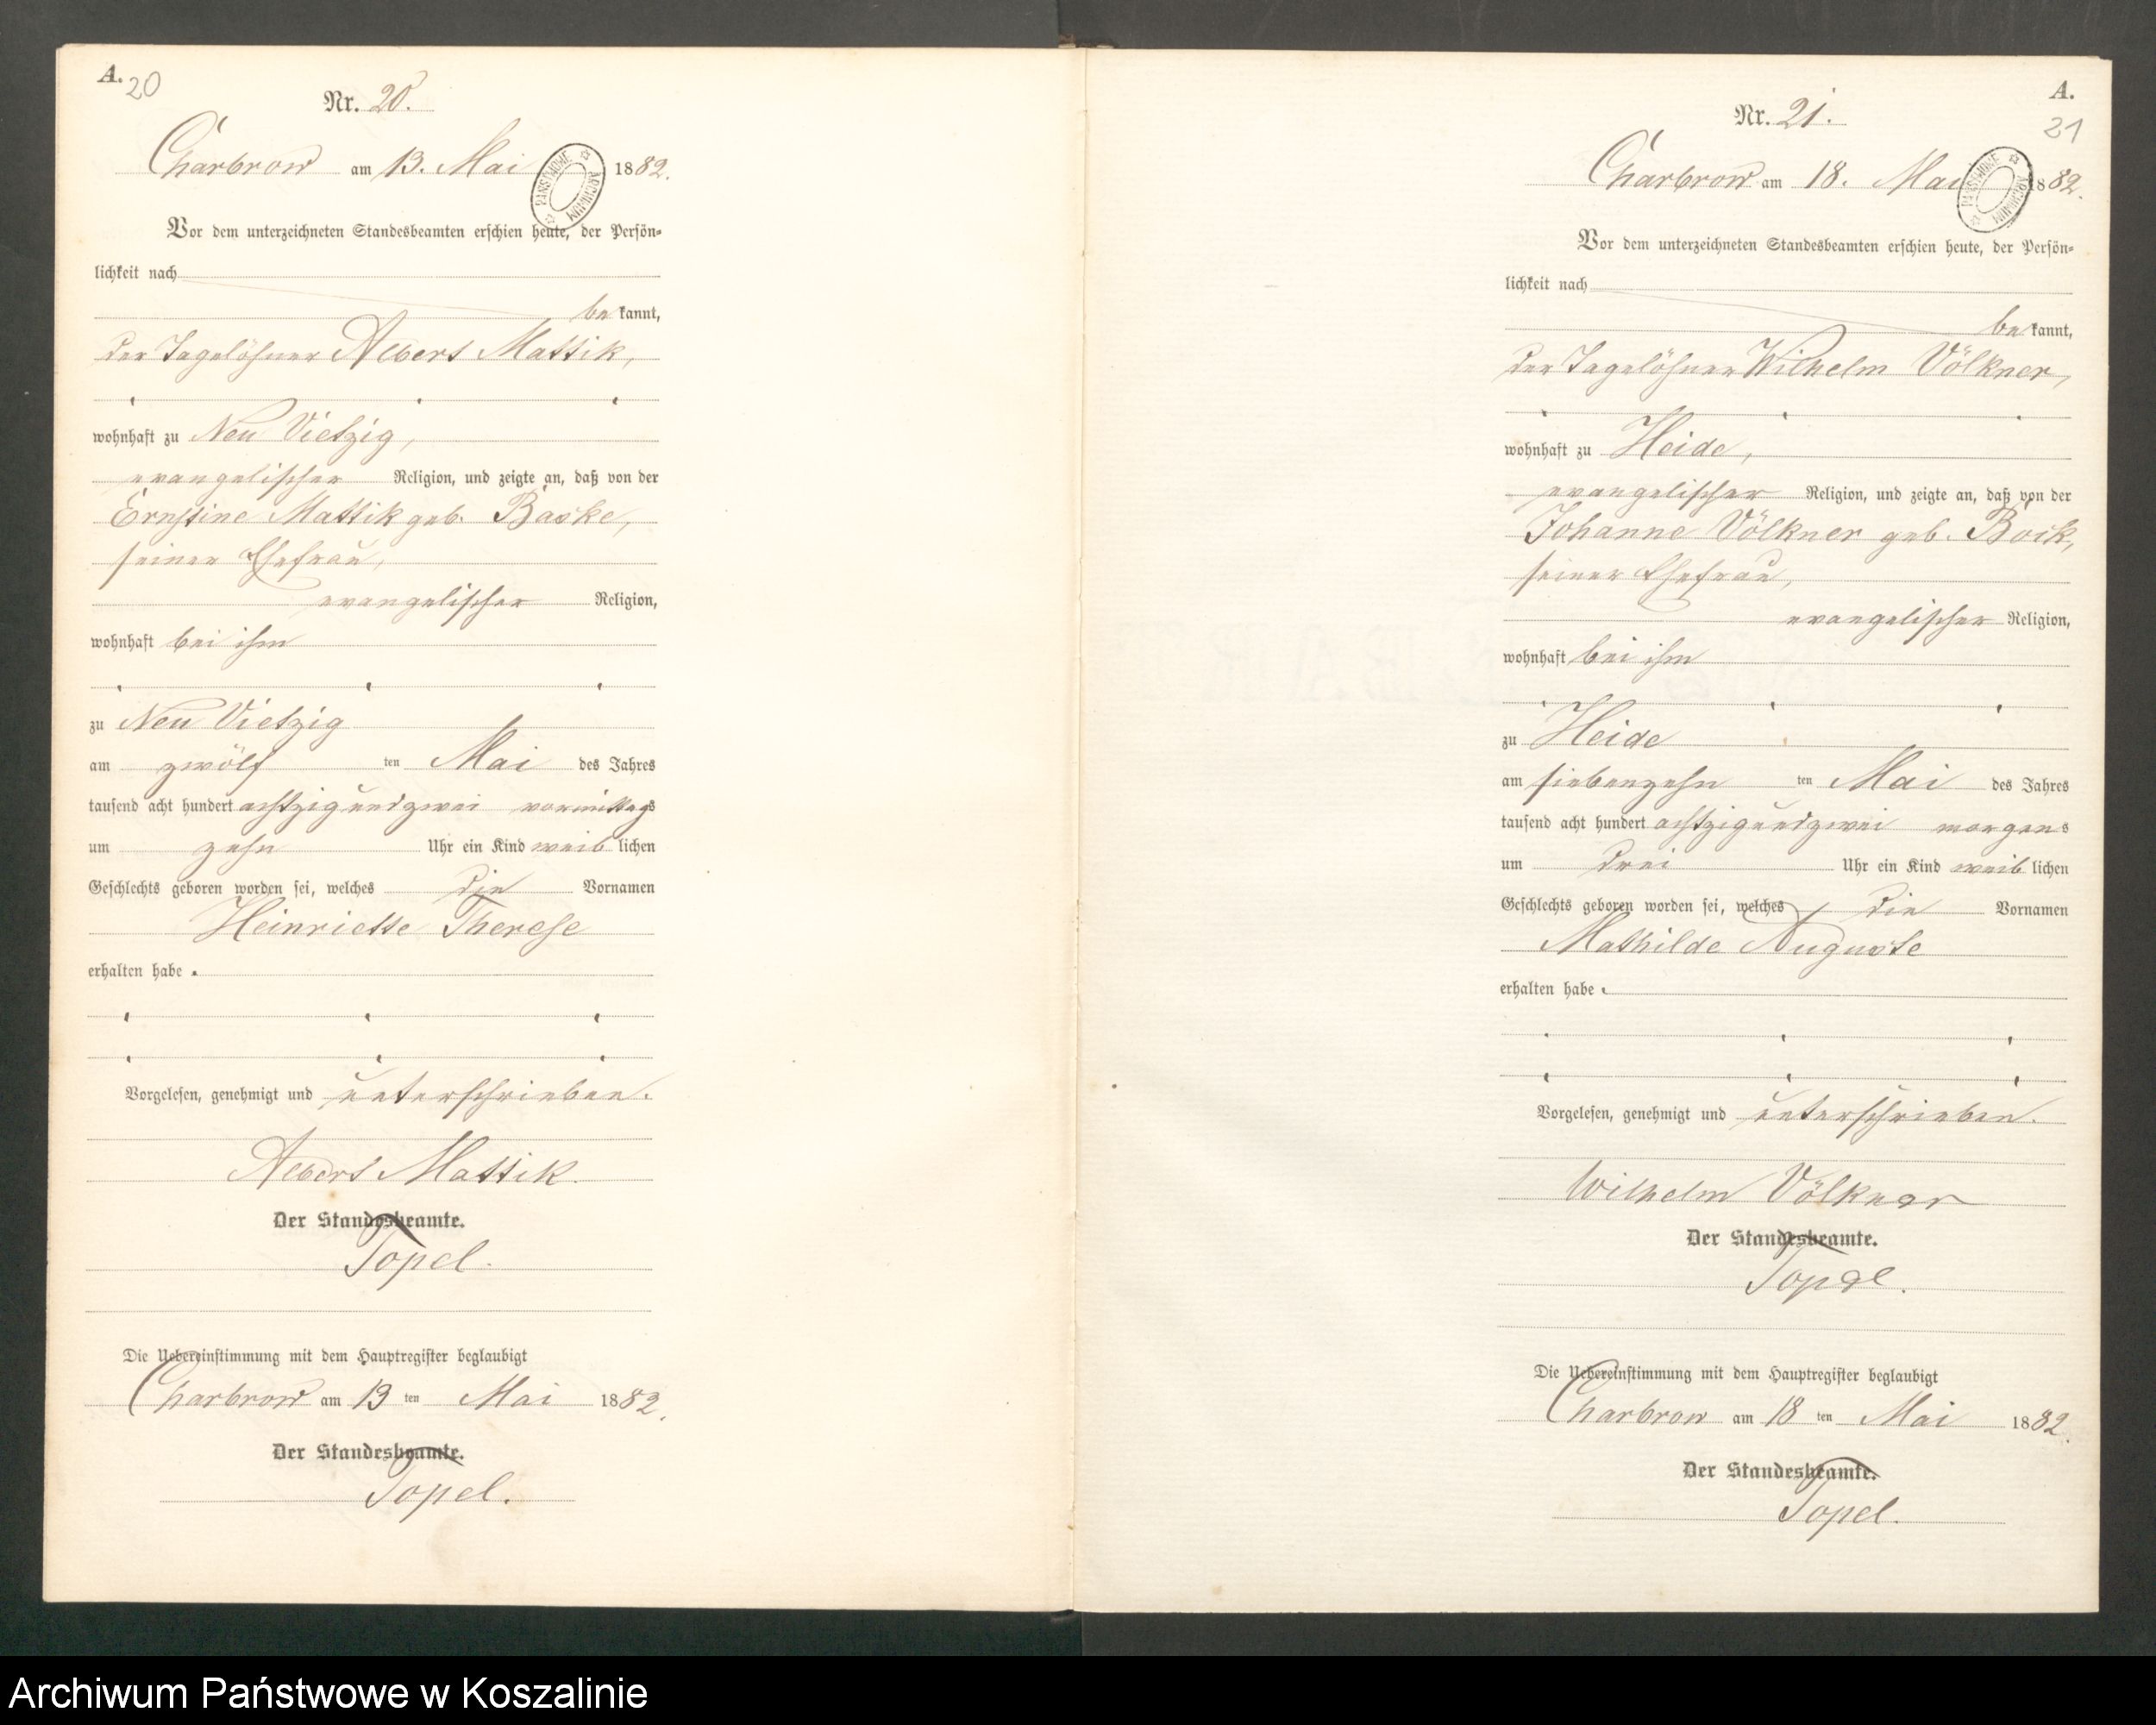 A.
20
Nr. 20.
Charbrow am 13. Mai 1882.
PANSTWOWE ARCHIWUM
Vor dem unterzeichneten Standesbeamten erschien heute, der Persön-
lichkeit nach
bekannt,
der Tagelöhner Albert Mattik,
wohnhaft zu Neu Vietzig,
evangelischer Religion, und zeigte an, daß von der
Ernstine Mattik geb. Baske,
seiner Ehefrau,
evangelischer Religion,
wohnhaft bei ihm
zu Neu Vietzig
am zwölf ten Mai des Jahres
tausend acht hundert achtzig und zwei vormittags
um zehn Uhr ein Kind weiblichen
Geschlechts geboren worden sei, welches die Vornamen
Heinriette Therese
erhalten habe.
Vorgelesen, genehmigt und unterschrieben.
Albert Mattik.
Der Standesbeamte.
Topel.
Die Uebereinstimmung mit dem Hauptregister beglaubigt
Charbrow am 13 ten Mai 1882.
Der Standesbeamte.
Topel.
A.
21
Nr. 21.
Charbrow am 18. Mai 1882.
PANSTWOWE ARCHIWUM
Vor dem unterzeichneten Standesbeamten erschien heute, der Persön-
lichkeit nach
bekannt,
der Tagelöhner Wilhelm Völkner,
wohnhaft zu Heide,
evangelischer Religion, und zeigte an, daß von der
Johanne Völkner geb. Bock,
seiner Ehefrau,
evangelischer Religion,
wohnhaft bei ihm
zu Heide
am siebenzehn ten Mai des Jahres
tausend acht hundert achtzig und zwei morgens
um drei Uhr ein Kind weiblichen
Geschlechts geboren worden sei, welches die Vornamen
Mathilde Auguste
erhalten habe.
Vorgelesen, genehmigt und unterschrieben.
Wilhelm Völkner
Der Standesbeamte.
Topel.
Die Uebereinstimmung mit dem Hauptregister beglaubigt
Charbrow am 18 ten Mai 1882.
Der Standesbeamte.
Topel.
Archiwum Państwowe w Koszalinie